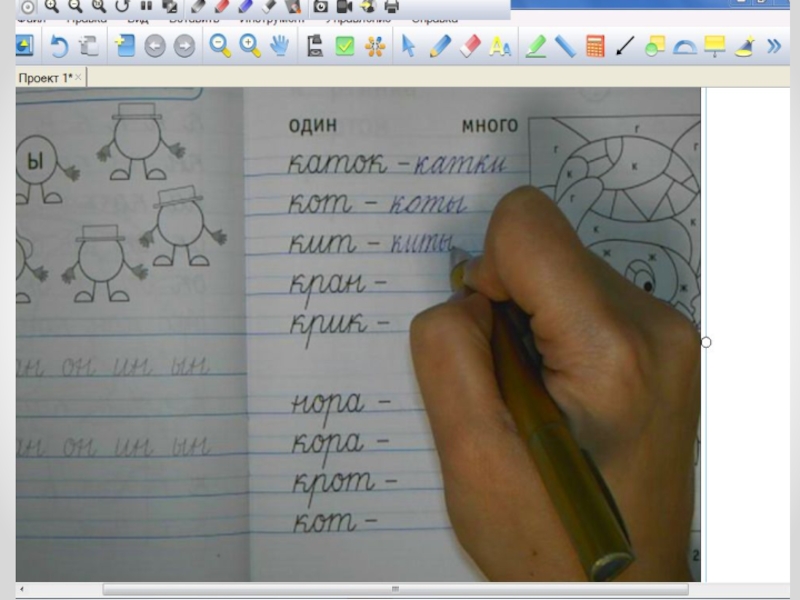 Файл Правка Вид Вставить Инструмент Управление Справка
Проект 1*
один много
каток – катки
кот – коты
кит – киты
кран –
крик –
нора –
кора –
крот –
кот –
ы
ан он ин ын
ан он ин ын
г
г
г
к
к
г
к
ж
ж
2